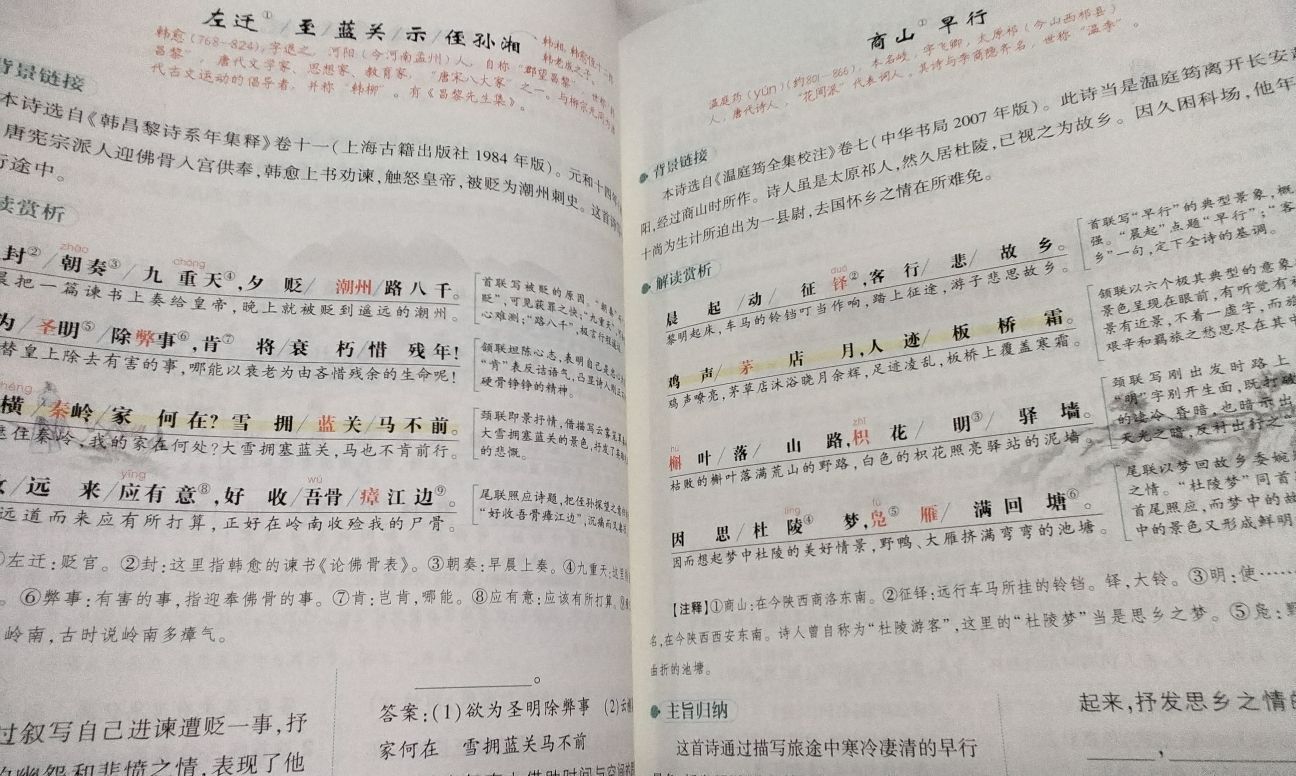 左迁①/至/蓝关/示/侄孙湘
韩愈(768—824),字退之,河阳(今河南孟州)人,自称“郡望昌黎”,世称“韩
昌黎”,唐代文学家、思想家、教育家,“唐宋八大家”之一。与柳宗元同为唐
代古文运动的倡导者,并称“韩柳”。有《昌黎先生集》。
韩湘,韩愈侄
韩老成之子。
背景链接
本诗选自《韩昌黎诗系年集释》卷十一(上海古籍出版社1984年版)。元和十四年
唐宪宗派人迎佛骨入宫供奉,韩愈上书劝谏,触怒皇帝,被贬为潮州刺史。这首诗
行途中。
读赏析
zhāo chóng
封②/朝奏③/九重天④,夕贬/潮州/路八千。
晨把一篇谏书上奏给皇帝,晚上就被贬到遥远的潮州。
首联写被贬的原因。“朝奏”
贬”,可见获罪之快;“九重天”
心难测;“路八千”,极言行程
为/圣明⑤/除弊事⑥,肯⑦将衰朽惜残年!
替皇上除去有害的事,哪能以衰老为由吝惜残余的生命呢!
颔联坦陈心志,表明自己是忠
“肯”表反诘语气,凸显诗人刚正
硬骨铮铮的精神。
héng
横/秦岭/家何在?雪拥/蓝关/马不前。
住秦岭,我的家在何处?大雪拥塞蓝关,马也不肯前行。
颈联即景抒情,借描写云雾
大雪拥塞蓝关的景色,抒发了
的悲慨。
yīng wú
/远来/应有意⑧,好收/吾骨/瘴江边⑨。
远道而来应有所打算,正好在岭南收殓我的尸骨。
尾联照应诗题,把侄孙探望之
“好收吾骨瘴江边”,沉痛而又
①左迁:贬官。②封:这里指韩愈的谏书《论佛骨表》。③朝奏:早晨上奏。④九重天:这里
。⑥弊事:有害的事,指迎奉佛骨的事。⑦肯:岂肯,哪能。⑧应有意:应该有所打算。
岭南,古时说岭南多瘴气。
过叙写自己进谏遭贬一事,抒
幽怨和悲愤之情,表现了他
。
答案:(1)欲为圣明除弊事 (2)云横
家何在 雪拥蓝关马不前
商山①早行
温庭筠(yún)(约801—866),本名岐,字飞卿,太原祁(今山西祁县)
人,唐代诗人,“花间派”代表词人,其诗与李商隐齐名,世称“温李”。
背景链接
本诗选自《温庭筠全集校注》卷七(中华书局2007年版)。此诗当是温庭筠离开长安
阳,经过商山时所作。诗人虽是太原祁人,然久居杜陵,已视之为故乡。因久困科场,他年
十尚为生计所迫出为一县尉,去国怀乡之情在所难免。
解读赏析
duó
晨起/动/征铎②,客行/悲/故乡。
黎明起床,车马的铃铛叮当作响,踏上征途,游子悲思故乡。
首联写“早行”的典型景象,概
强。“晨起”点题“早行”;“客
乡”一句,定下全诗的基调。
鸡声/茅店月,人迹/板桥霜。
鸡声嘹亮,茅草店沐浴晓月余辉,足迹凌乱,板桥上覆盖寒霜。
颔联以六个极其典型的意象
景色呈现在眼前,有听觉有
景有近景,不着一虚字,而旅
艰辛和羁旅之愁思尽在其中
hú zhǐ
槲叶/落/山路,枳花/明③/驿墙。
枯败的槲叶落满荒山的野路,白色的枳花照亮驿站的泥墙。
颈联写刚出发时路上
“明”字别开生面,既打破
的凄冷、昏暗,也暗示出
天光之暗,反衬出行之
líng fú
因思/杜陵④梦,凫⑤雁/满回塘⑥。
因而想起梦中杜陵的美好情景,野鸭、大雁挤满弯弯的池塘。
尾联以梦回故乡委婉
之情。“杜陵梦”同首
首尾照应,而梦中的故
中的景色又形成鲜明
【注释】①商山:在今陕西商洛东南。②征铎:远行车马所挂的铃铛。铎,大铃。③明:使……
名,在今陕西西安东南。诗人曾自称为“杜陵游客”,这里的“杜陵梦”当是思乡之梦。⑤凫:野
曲折的池塘。
主旨归纳
这首诗通过描写旅途中寒冷凄清的早行
起来,抒发思乡之情的
,